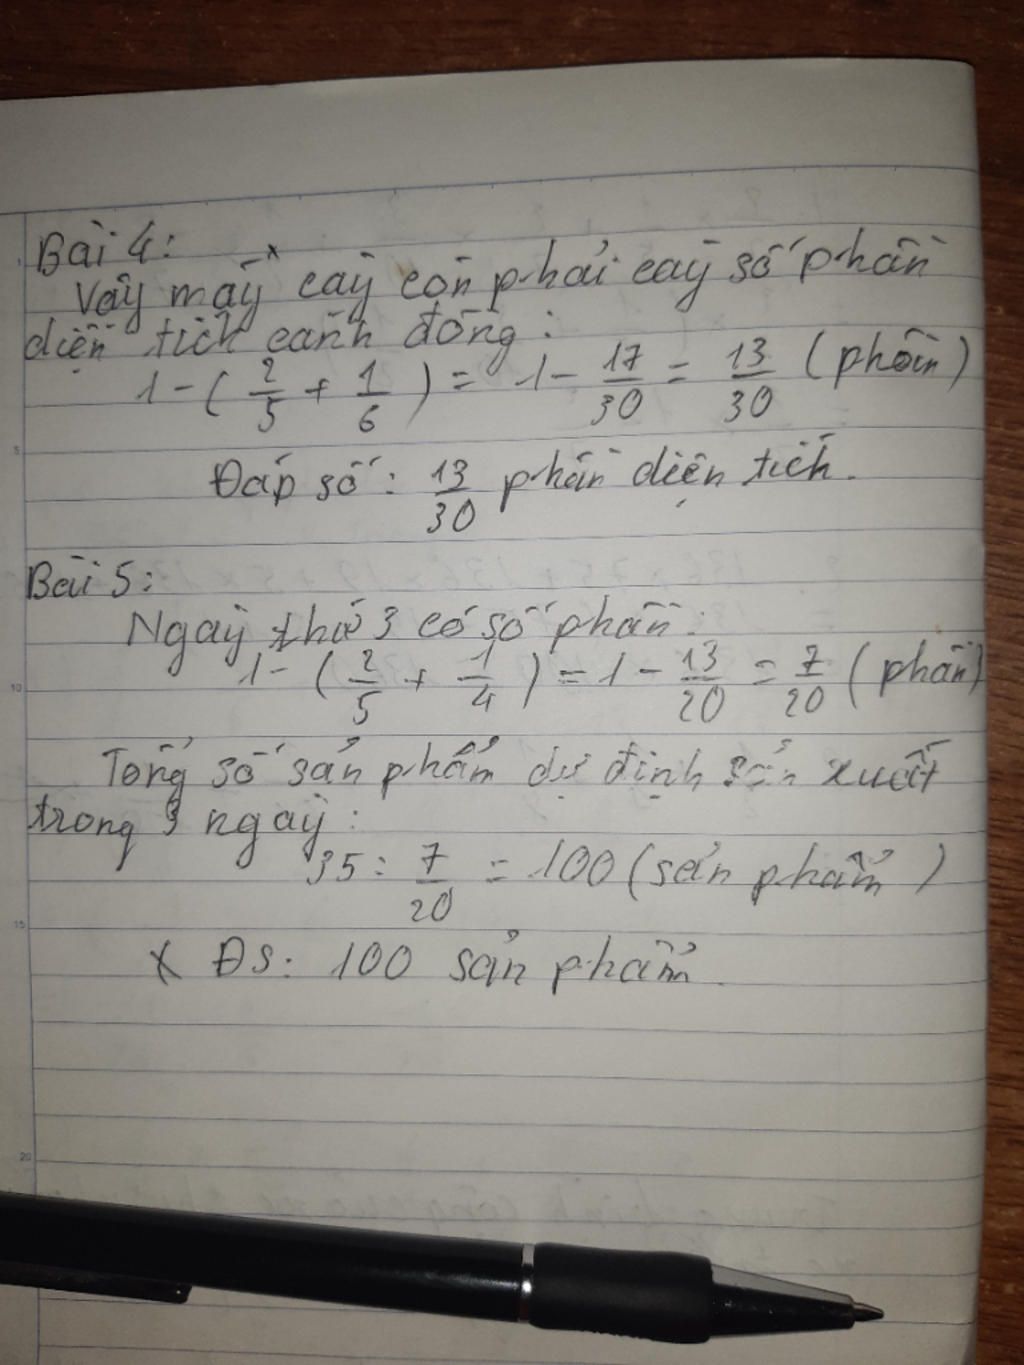 Bài 4:
Vậy máy cày còn phải cày số phần
diện tích cánh đồng:
1 - ( 2/5 + 1/6 ) = 1 - 17/30 = 13/30 ( phần )
Đáp số: 13/30 phần diện tích.
Bài 5:
Ngày thứ 3 có số phần:
1 - ( 2/5 + 1/4 ) = 1 - 13/20 = 7/20 ( phần )
Tổng số sản phẩm dự định sản xuất
trong 3 ngày:
35 : 7/20 = 100 ( sản phẩm )
ĐS: 100 sản phẩm.
5
10
15
20